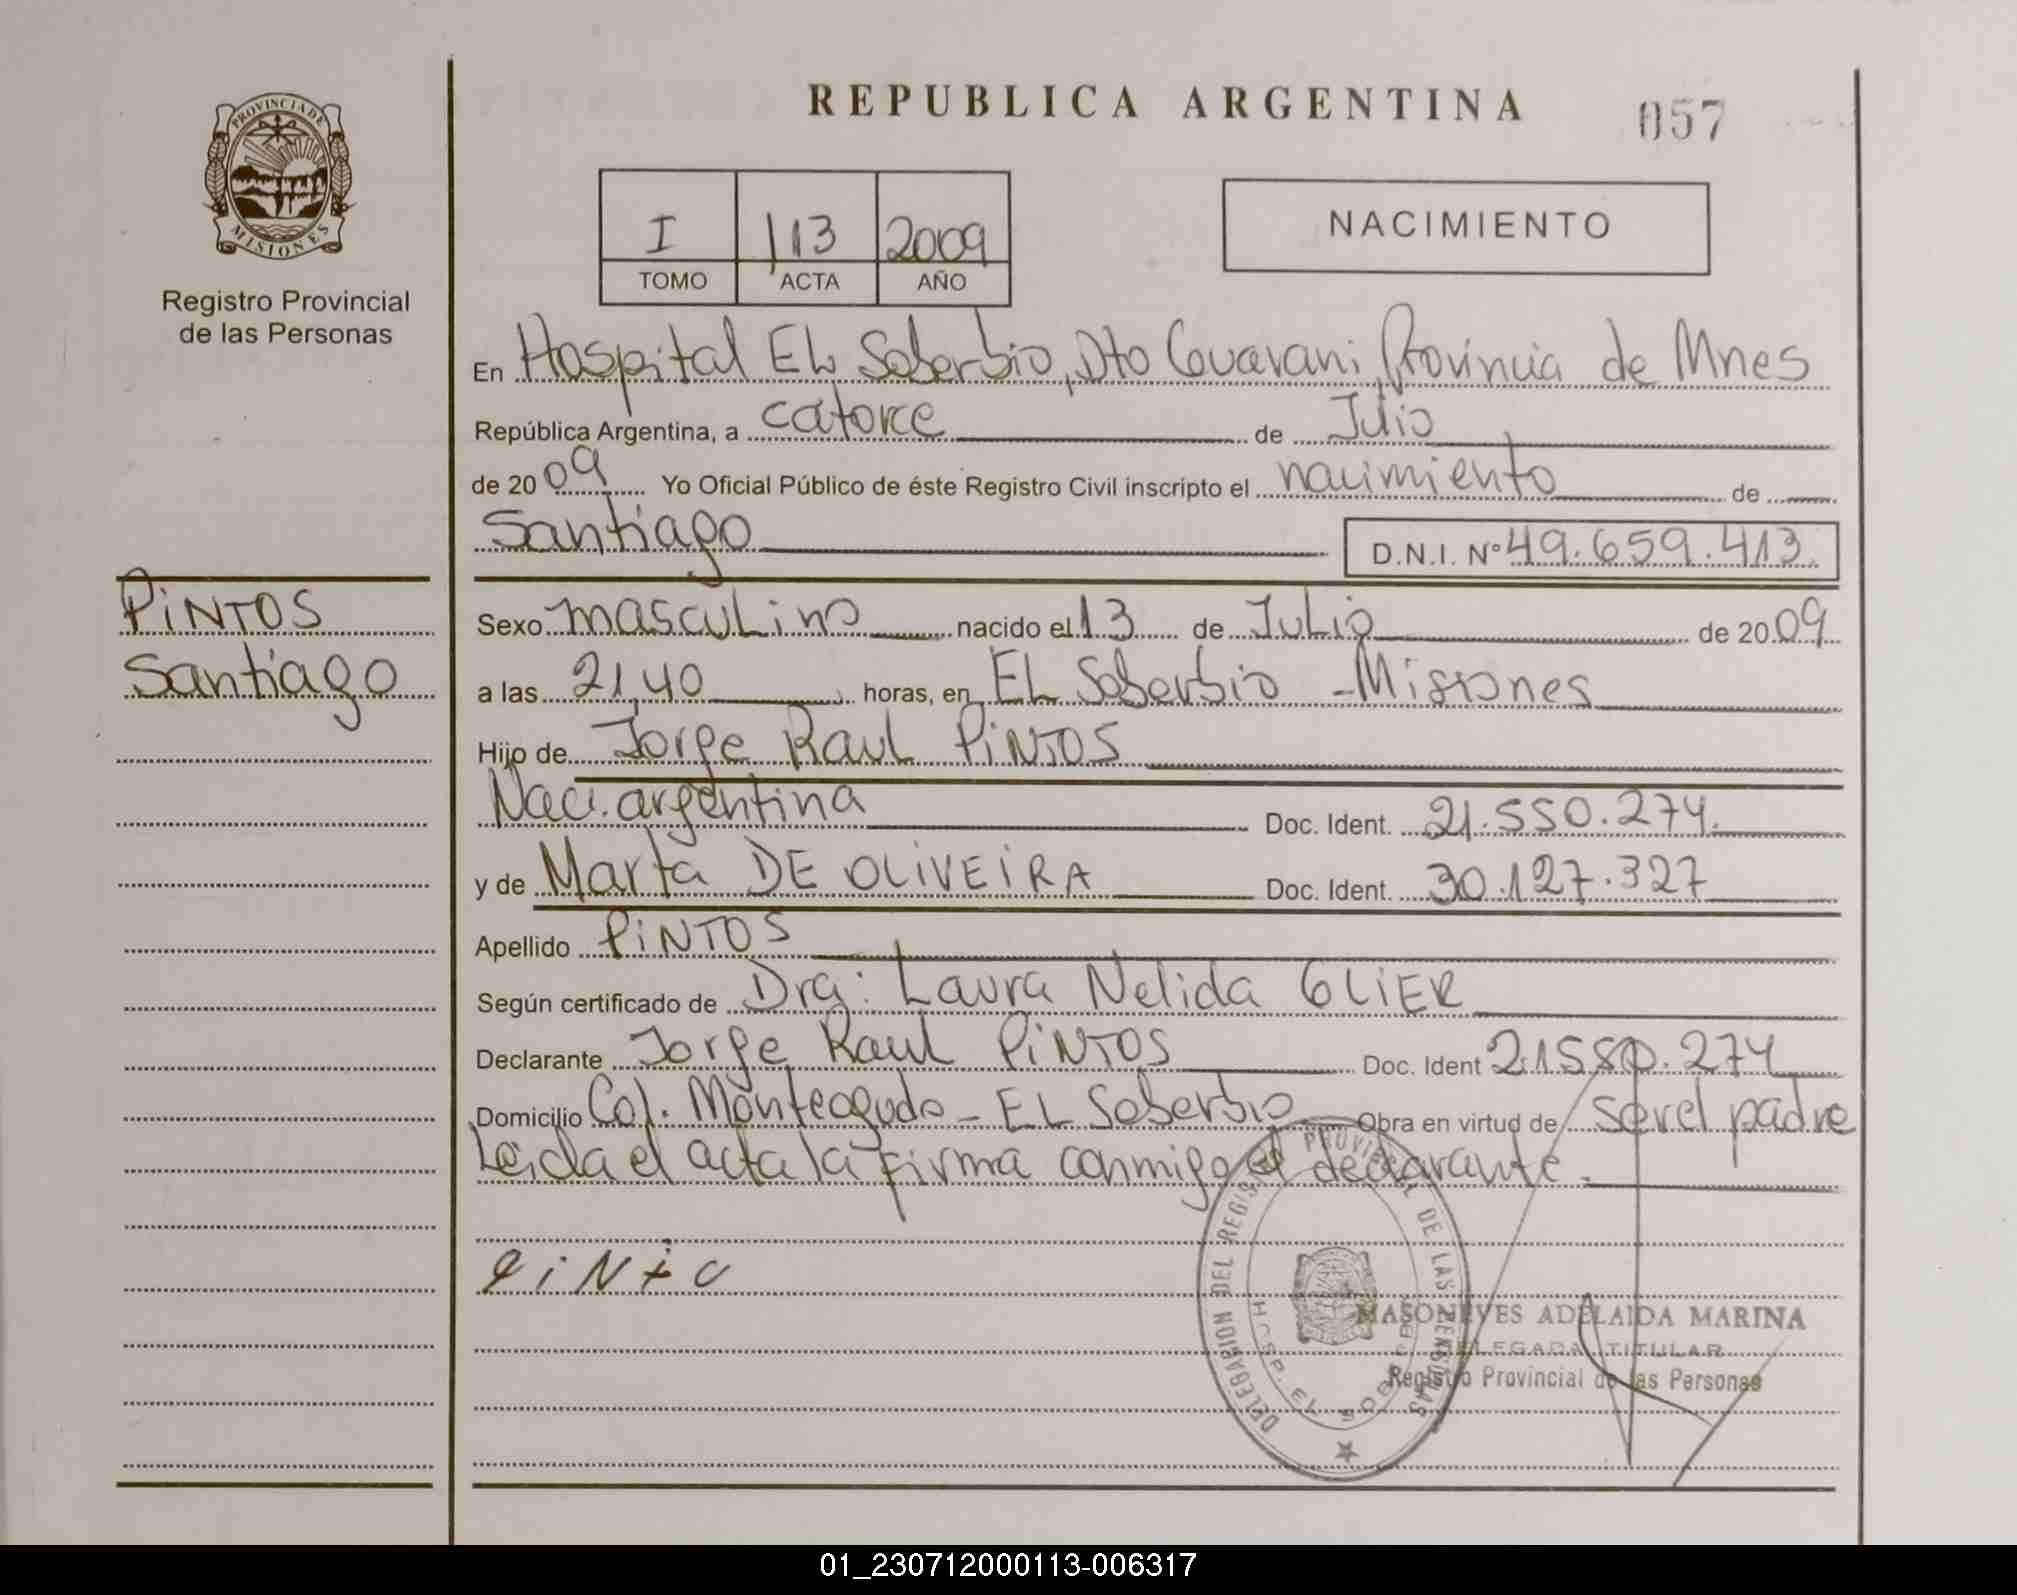 REPUBLICA ARGENTINA
057
PROVINCIA DE
MISIONES
Registro Provincial
de las Personas
I 113 2009
TOMO ACTA AÑO
NACIMIENTO
En Hospital EL Soberbio, Dto Guarani, Provincia de Mnes
República Argentina, a catorce de Julio
de 2009 Yo Oficial Público de éste Registro Civil inscripto el nacimiento de
Santiago D.N.I. Nº 49.659.413.
PiNTOS
Santiago
Sexo masculino nacido el 13 de Julio de 2009
a las 21,40 horas, en EL Soberbio - Misiones
Hijo de Jorge Raul PiNTOS
Naci. argentina Doc. Ident. 21.550.274.
y de Marta DE OLiVEiRA Doc. Ident. 30.127.327
Apellido PiNTOS
Según certificado de Dra: Laura Nelida GLiER
Declarante Jorge Raul PiNTOS Doc. Ident 21550.274
Domicilio Col. Monteagudo - EL Soberbio Obra en virtud de ser el padre
Leida el acta la firma conmigo el declarante.
DELEGACION DEL REGISTRO PROVINCIAL DE LAS PERSONAS
HOSP. EL SOBERBIO
MASONEVES ADELAIDA MARINA
DELEGADA TITULAR
Registro Provincial de las Personas
01_230712000113-006317